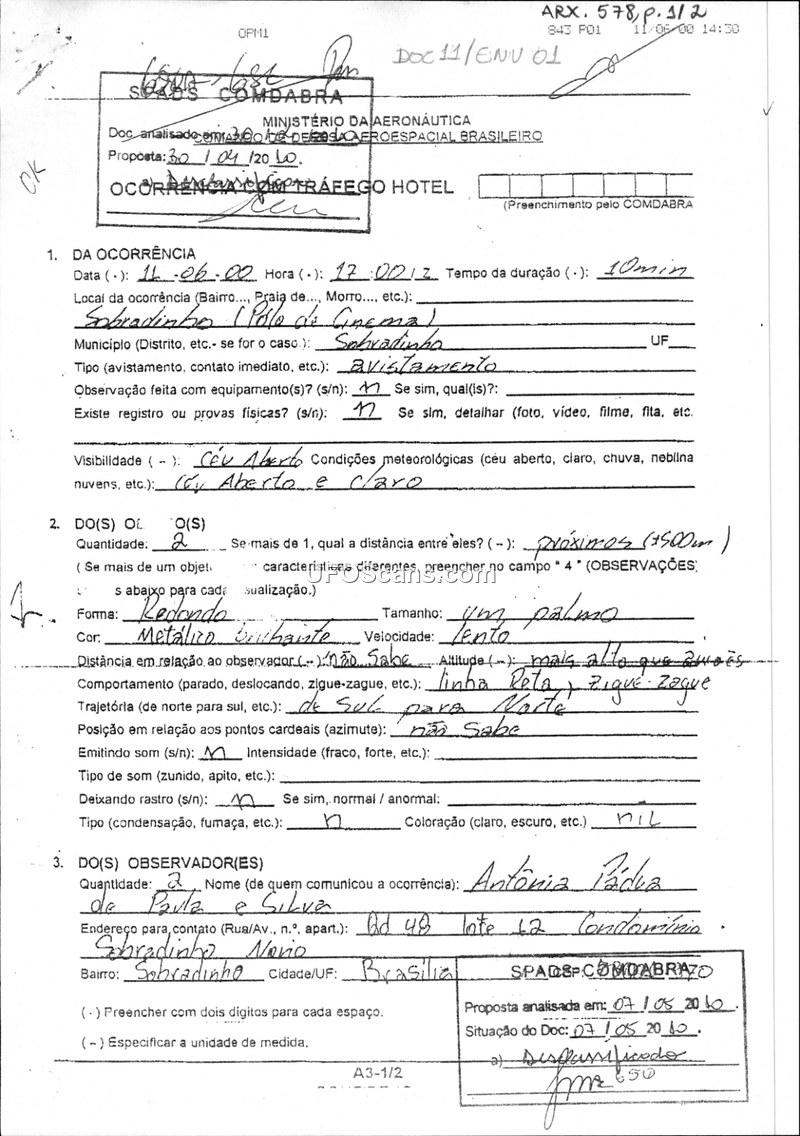 ARX. 578, p. 1/2
OPM1
843 P01 11/06/00 14:30
DOC 11/ENV 01
SPADS COMDABRA
MINISTÉRIO DA AERONÁUTICA
Doc. analisado em: 30
COMANDO DE DEFESA AEROESPACIAL BRASILEIRO
Proposta: 30 / 04 /20 10.
OK
a) Desclassificar
OCORRÊNCIA COM TRÁFEGO HOTEL
(Preenchimento pelo COMDABRA
1. DA OCORRÊNCIA
Data (·): 11 -06-00 Hora (·): 17:00 / Z Tempo da duração (·): 10 min
Local da ocorrência (Bairro..., Praia de..., Morro..., etc.):
Sobradinho (Pólo de Cinema)
Município (Distrito, etc.- se for o caso ): Sobradinho UF
Tipo (avistamento, contato imediato, etc.): avistamento
Observação feita com equipamento(s)? (s/n): n Se sim, qual(is)?:
Existe registro ou provas físicas? (s/n): n Se sim, detalhar (foto, vídeo, filme, fita, etc.
Visibilidade ( – ): Céu Aberto Condições meteorológicas (céu aberto, claro, chuva, neblina
nuvens, etc.): Céu Aberto e claro
2. DO(S) O O(S)
Quantidade: 2 Se mais de 1, qual a distância entre eles? ( – ): próximos (±500m)
( Se mais de um objet características diferentes, preencher no campo " 4 " (OBSERVAÇÕES)
UFOScans.com
s abaixo para cada sualização.)
Forma: Redondo Tamanho: um palmo
Cor: Metálico brilhante Velocidade: lento
Distância em relação ao observador ( – ): não Sabe Altitude ( – ): mais alto que aviões
Comportamento (parado, deslocando, zigue-zague, etc.): linha Reta, Zigue-Zague
Trajetória (de norte para sul, etc.): de Sul para Norte
Posição em relação aos pontos cardeais (azimute): não Sabe
Emitindo som (s/n): n Intensidade (fraco, forte, etc.):
Tipo de som (zunido, apito, etc.):
Deixando rastro (s/n): n Se sim, normal / anormal:
Tipo (condensação, fumaça, etc.): n Coloração (claro, escuro, etc.) nil
3. DO(S) OBSERVADOR(ES)
Quantidade: 2 Nome (de quem comunicou a ocorrência): Antônia Pádua
de Paula e Silva
Endereço para contato (Rua/Av., n.º, apart.): Qd 48 lote 12 Condomínio
Sobradinho Novo
Bairro: Sobradinho Cidade/UF: Brasília
SPADS COMDABRA
(·) Preencher com dois dígitos para cada espaço.
Proposta analisada em: 07 / 05 20 10.
Situação do Doc: 07 / 05 20 10.
( – ) Especificar a unidade de medida.
a) Desclassificado
650
A3-1/2